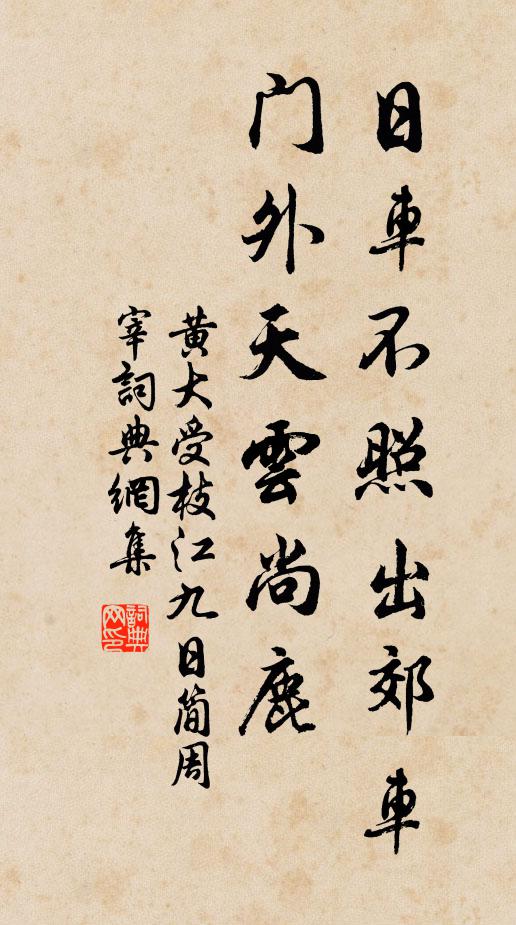 日車不照出郊車
門外天雲尚鹿
黃大受枝江九日簡周
宰詞典網集
詞典網印